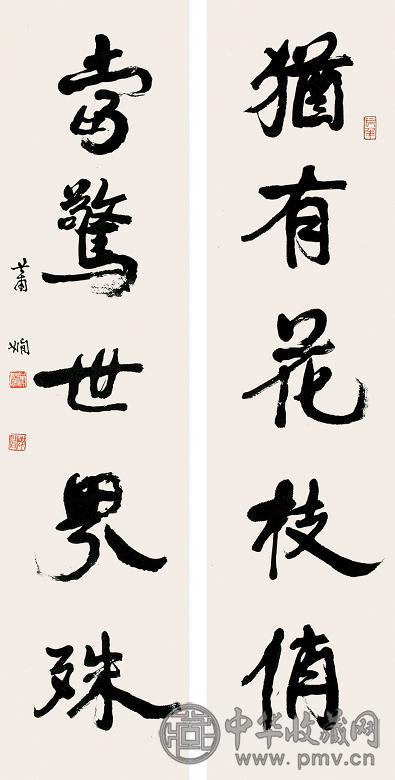 猶有花枝俏
當驚世界殊
蕭嫻
中华收藏网
www.pmv.cn